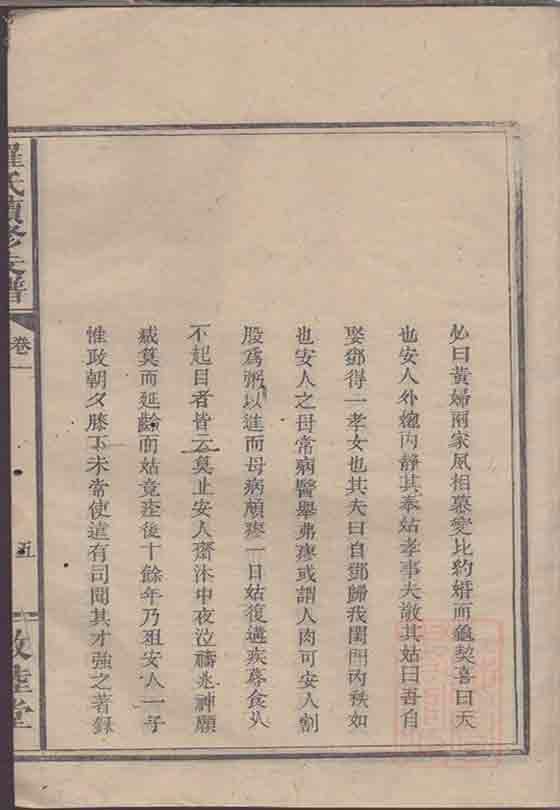 必曰黃婦兩家夙相慕愛比約婚而龜契喜曰天
也安人外總內靜其奉姑孝事夫敬其姑曰吾自
娶鄧得一孝女也其夫曰自鄧歸我閨門內秩如
也安人之母常病醫舉弗瘳或謂人肉可安人割
股為粥以進而母病頓瘳一日姑復遘疾募食久
不起目者皆云莫止安人齋沐中夜泣禱兆神願
減算而延齡而姑竟產後十餘年乃殂安人一子
惟政朝夕膝下未常使違有司聞其才強之著錄
羅氏續修支譜
卷一
五
敦睦堂